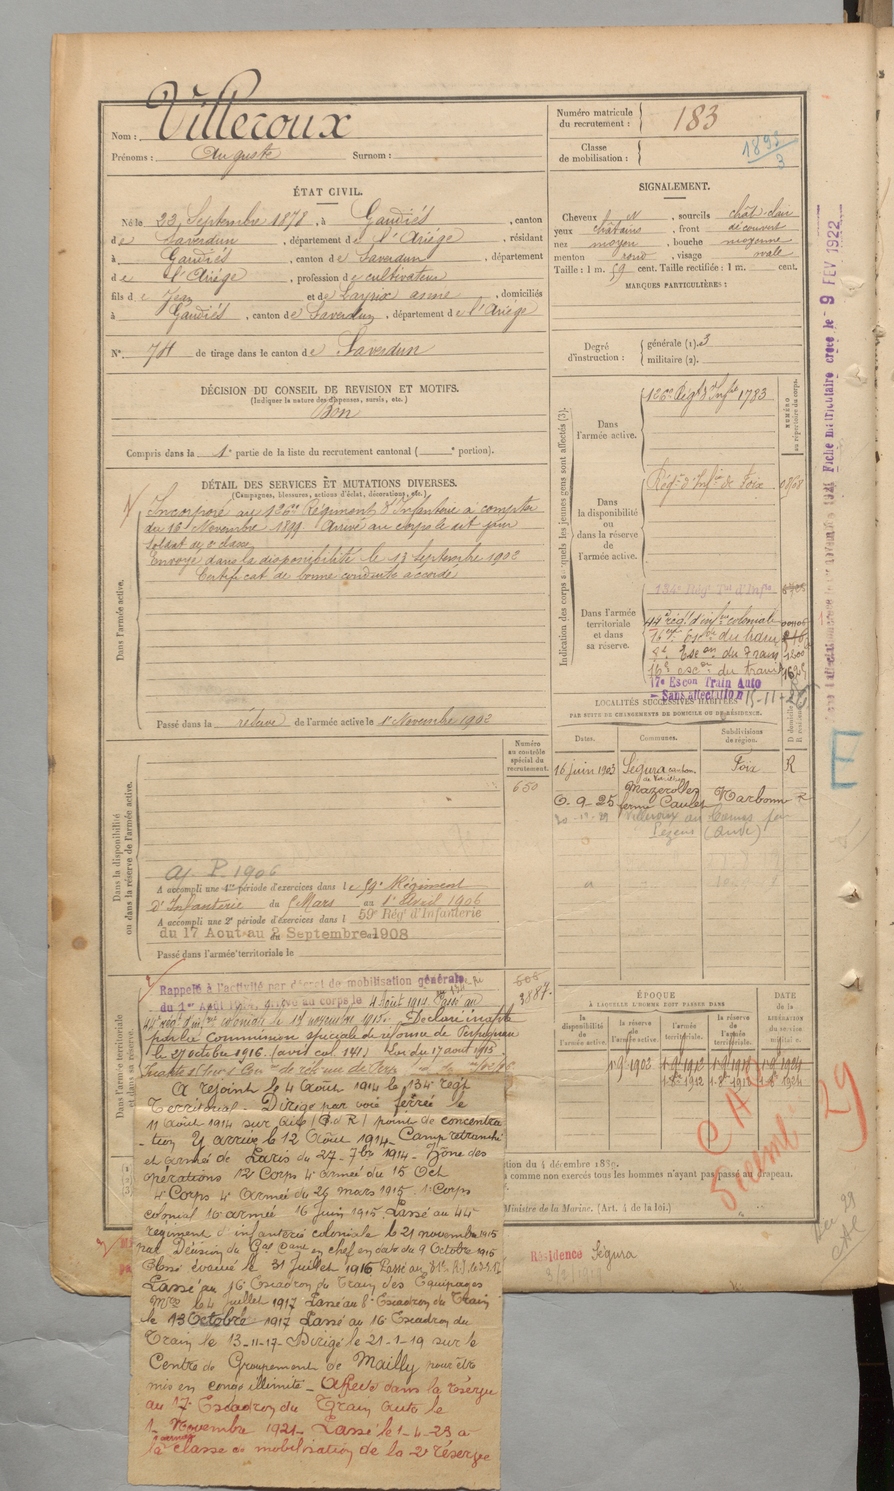 Nom : Villeroux
Prénoms : Auguste Surnom :
ÉTAT CIVIL.
Né le 23 Septembre 1878, à Gaudiés, canton
de Saverdun, département de l'Ariége, résidant
à Gaudiés, canton de Saverdun, département
de l'Ariége, profession de cultivateur
fils de Jean et de, domiciliés
à Gaudiés, canton de Saverdun, département de l'Ariége
N° de tirage dans le canton de Saverdun
DÉCISION DU CONSEIL DE REVISION ET MOTIFS.
(Indiquer la nature des dispenses, sursis, etc.)
Bon
Compris dans la 1e partie de la liste du recrutement cantonal ( e portion).
DÉTAIL DES SERVICES ET MUTATIONS DIVERSES.
(Campagnes, blessures, actions d'éclat, décorations, etc.)
Dans l'armée active.
Incorporé au 126e Régiment d'Infanterie à compter
du 16 Novembre 1899 Arrivé au corps le dit jour
Soldat de 2e classe
Envoyé dans la disponibilité le septembre 1902
Certificat de bonne conduite accordé
Passé dans la réserve de l'armée active le 1er Novembre 1902
Dans la disponibilité
ou dans la réserve de l'armée active.
Numéro
au contrôle
spécial du
recrutement.
650
A accompli une 1re période d'exercices dans le 59e Régiment
d'Infanterie du Mars au 1er Avril 1906
A accompli une 2e période d'exercices dans l 59e Rég' d'Infanterie
du 17 Aout au 2 Septembre 1908
Passé dans l'armée territoriale le
Dans l'armée territoriale
et dans sa réserve.
Rappelé à l'activité par décret de mobilisation générale
du 1er Août 1914, arrivé au corps le 4 août 1914 Passé au
44e rég. d'inf. coloniale le novembre 1915. Déclaré inapte
par la Commission spéciale de réforme de Perpignan
le 27 octobre 1916. (avis col. 141) Loi du 17 août 1915
A rejoint le 4 Août 1914 le 134e régt
Territorial - Dirigé par voie ferrée le
11 août 1914 sur point de concentra
-tion Y arrive le 12 Août 1914 - Camp retranché
et armée de Paris du 27-7bre 1914 - Zône des
opérations 12e Corps 4e armée du 15 Oct
4e Corps 4e Armée du 26 mars 1915. 1er Corps
colonial 16 armée 16 Juin 1915. Passé au 44e
régiment d'infanterie coloniale le 21 novembre 1915
par Décision du Gal Cant en chef en date du 9 Octobre 1915
évacué le 31 Juillet 1916
Passé au 16e Escadron du Train des Équipages
Mres le 4 Juillet 1917 Passé au 8e Escadron du Train
le 13 Octobre 1917 Passé au 16e Escadron du
Train le 13-11-17 - Dirigé le 21-1-19 sur le
Centre de Groupement de Mailly pour être
mis en congé illimité - Affecté dans la réserve
au 17e Escadron du Train Auto le
1er Novembre 1921 - Passé le 1-4-23 à
la classe de mobilisation de la 2e réserve
Numéro matricule
du recrutement : 183
Classe
de mobilisation : 1895/3
SIGNALEMENT.
Cheveux N, sourcils chât. clair
yeux châtains, front découvert
nez moyen, bouche moyenne
menton rond, visage ovale
Taille : 1 m. 59 cent. Taille rectifiée : 1 m. cent.
MARQUES PARTICULIÈRES :
Degré
d'instruction :
générale (1). 3
militaire (2).
Indication des corps auxquels les jeunes gens sont affectés (3).
NUMÉRO
au répertoire du corps.
Dans
l'armée active.
126e Régt d'Infie 1783
Dans
la disponibilité
ou
dans la réserve
de
l'armée active.
Régt d'Infie de Foix
Dans l'armée
territoriale
et dans
sa réserve.
134e Rég. Ter d'Infie
44e rég. d'inf. coloniale
16e Escon du train
8e Escon du Train
16e escon du train
17e Escon Train Auto
- Sans affectation 15-11-26
LOCALITÉS SUCCESSIVES HABITÉES
PAR SUITE DE CHANGEMENTS DE DOMICILE OU DE RÉSIDENCE.
Dates. Communes. Subdivisions de région. D domicile R résidence
16 juin 1903 Ségura Foix R
6-9-25 Mazerolles ferme Narbonne R
(Aude)
505
3884
ÉPOQUE
À LAQUELLE L'HOMME DOIT PASSER DANS
la disponibilité de l'armée active.
la réserve de l'armée active.
l'armée territoriale.
la réserve de l'armée territoriale.
DATE de la LIBÉRATION du service militaire.
1-9-1902 1-9-1912 1-9-1918 1-9-1924
ction du 4 décembre 1889.
s comme non exercés tous les hommes n'ayant pas passé au drapeau.
Ministre de la Marine. (Art. 4 de la loi.)
Résidence Ségura
Fiche matriculaire créée le 9 FEV 1922
29